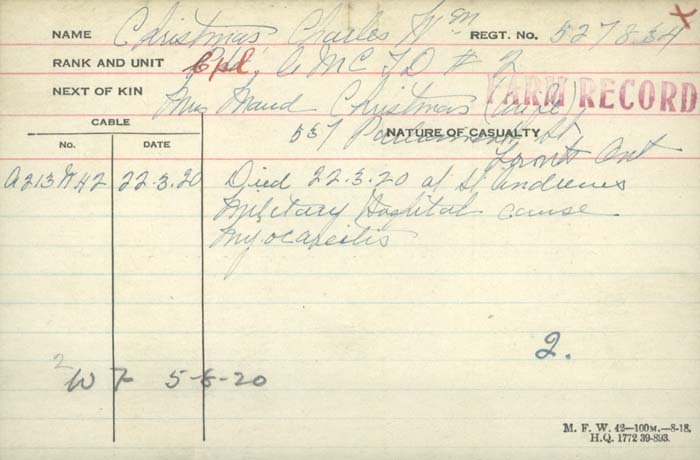 NAME Christmas Charles Wm REGT. No. 527834
RANK AND UNIT Cpl. C M C T D # 2
NEXT OF KIN Mrs Maud Christmas (wife)
FARM RECORD
CABLE
537 Parliament St
NATURE OF CASUALTY
Toronto Ont
No. DATE
A213 W42 22.3.20 Died 22.3.20 at St Andrews
Military Hospital cause
Myocarditis
2.
2 W F 5-8-20
M. F. W. 42—100M.—8-18.
H.Q. 1772 39-893.